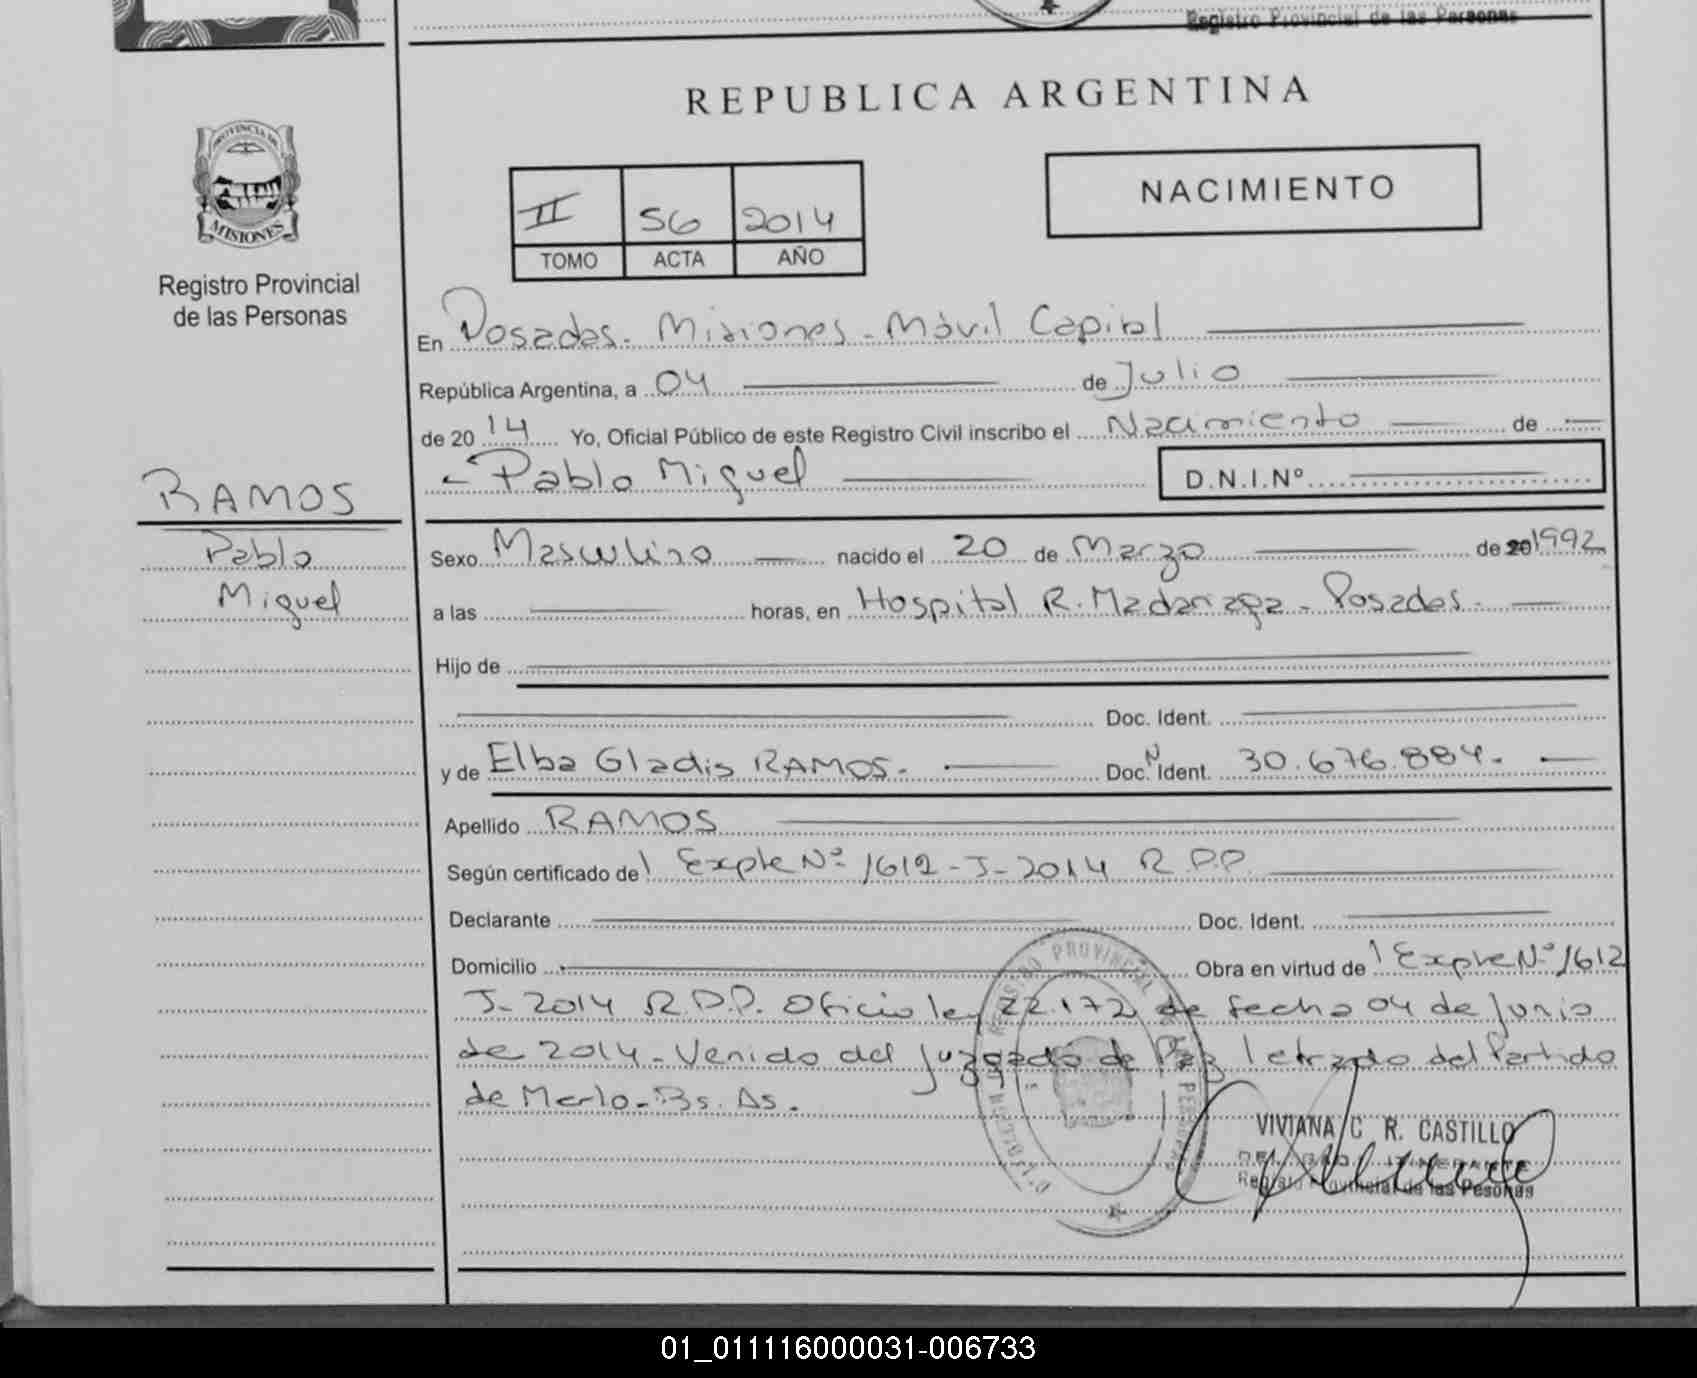 Registro Provincial de las Personas
REPUBLICA ARGENTINA
PROVINCIA DE
MISIONES
Registro Provincial
de las Personas
NACIMIENTO
II 56 2014
TOMO ACTA AÑO
En Posadas - Misiones - Móvil Capital
República Argentina, a 04 de Julio
de 2014 Yo, Oficial Público de este Registro Civil inscribo el Nacimiento de
Pablo Miguel D.N.I.Nº
RAMOS
Pablo
Miguel
Sexo Masculino nacido el 20 de Marzo de 20 1992
a las horas, en Hospital R. Madariaga - Posadas.
Hijo de
Doc. Ident.
y de Elba Gladis RAMOS. Doc. N Ident. 30.676.884.
Apellido RAMOS
Según certificado del Expte Nº 1612 - J - 2014 R.P.P.
Declarante Doc. Ident.
Domicilio Obra en virtud de Expte Nº 1612
J - 2014 R.P.P. Oficio ley 22.172 de fecha 04 de Junio
de 2014 - Venido del Juzgado de Paz letrado del Partido
de Merlo - Bs. As.
REGISTRO PROVINCIAL DE LAS PERSONAS
VIVIANA C R. CASTILLO
ITINERANTE
Registro Provincial de las Pesonas
01_011116000031-006733